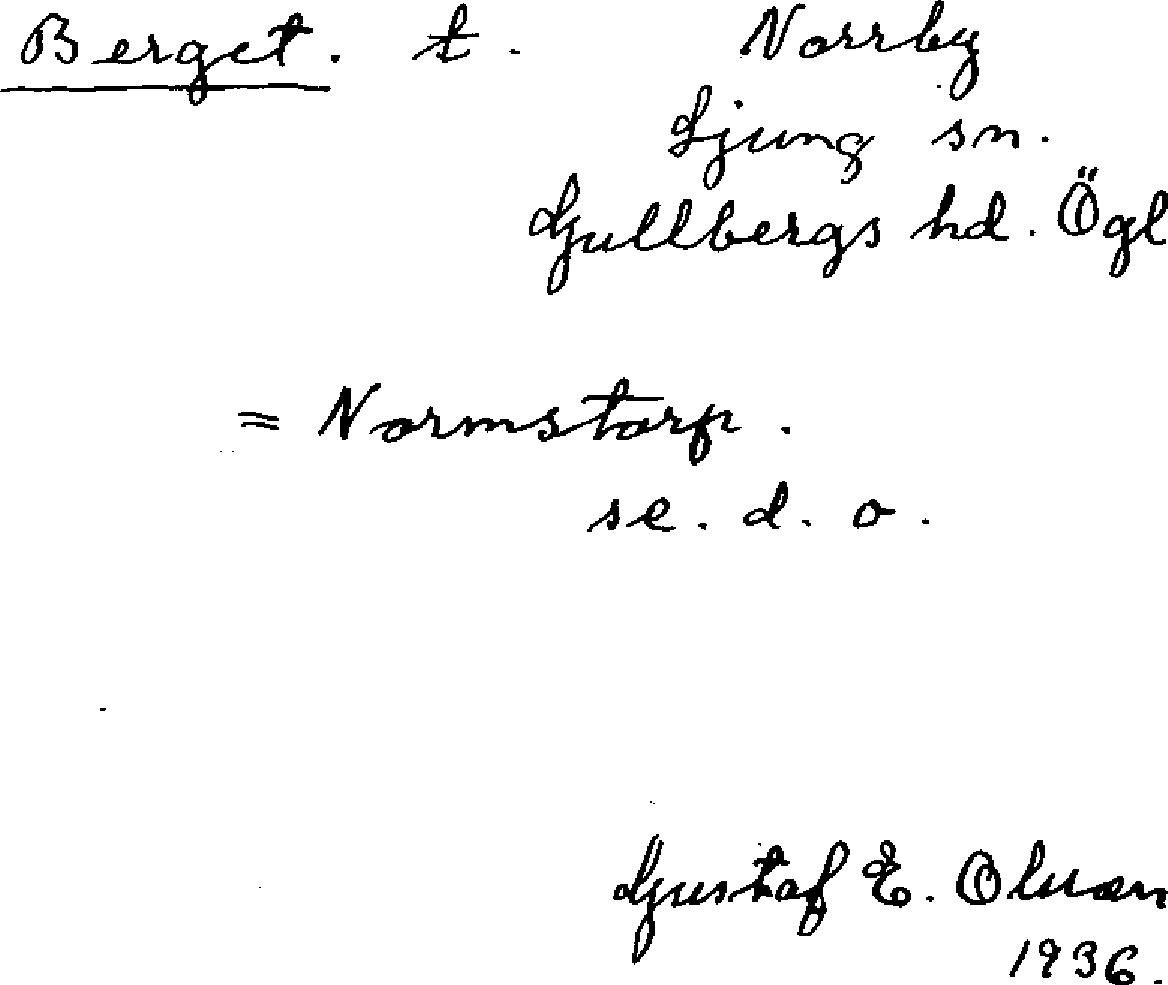 Berget. t. Norrby
Ljung sn.
Gullbergs hd. Ögl
= Normstorp.
se. d. o.
Gustaf E. Olsson
1936.